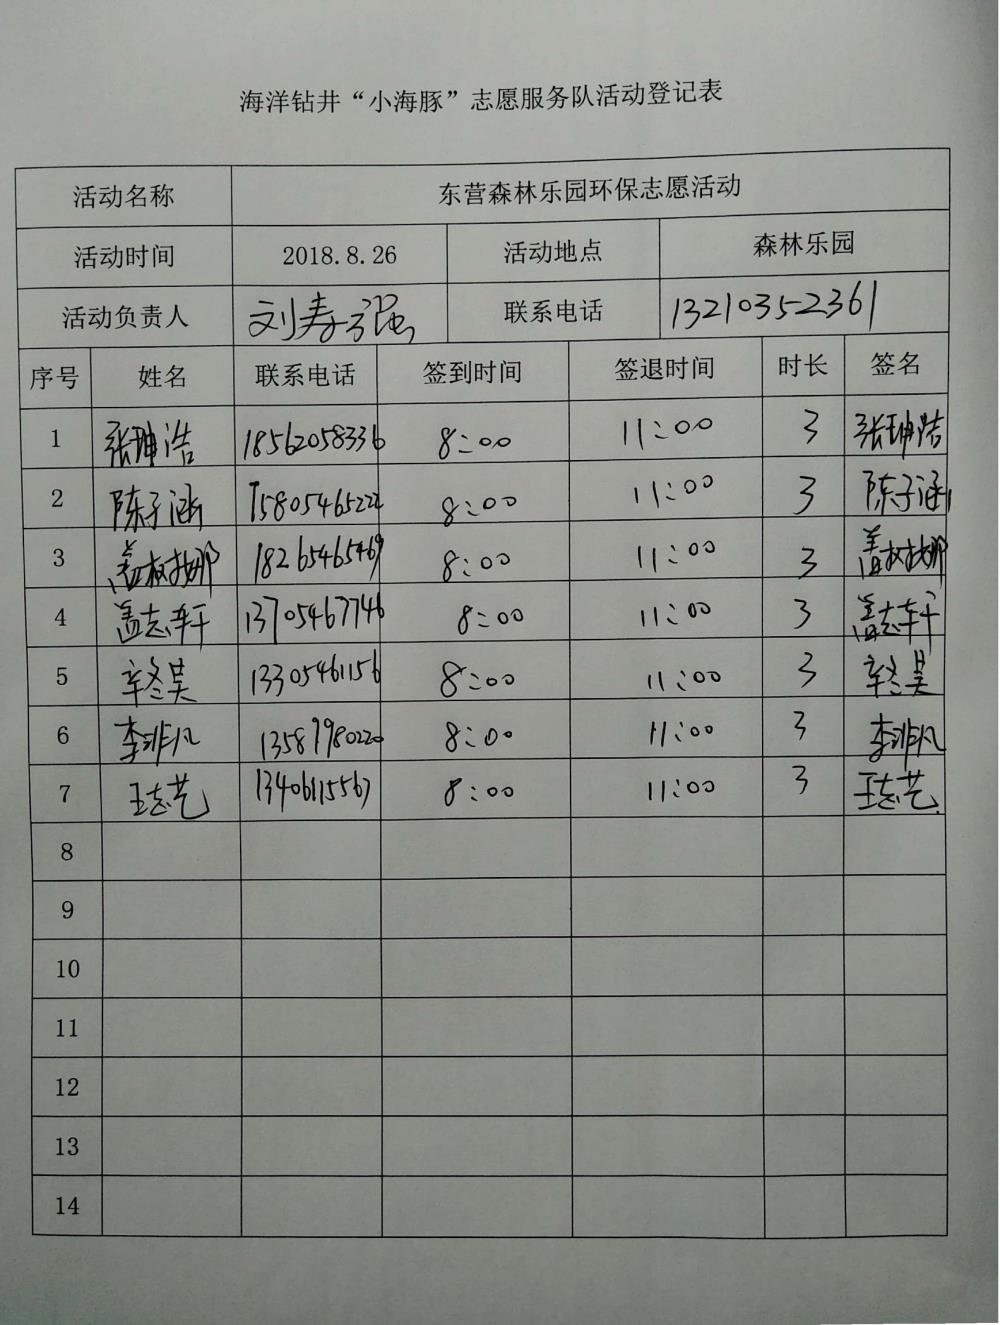 海洋钻井“小海豚”志愿服务队活动登记表
活动名称 东营森林乐园环保志愿活动
活动时间 2018.8.26 活动地点 森林乐园
活动负责人 刘寿强 联系电话 13210352361
序号 姓名 联系电话 签到时间 签退时间 时长 签名
1 张珅浩 18562058336 8:00 11:00 3 张珅浩
2 陈子涵 15805465222 8:00 11:00 3 陈子涵
3 18265465469 8:00 11:00 3
4 盖志轩 13705467746 8:00 11:00 3 盖志轩
5 辛冬昊 13305461156 8:00 11:00 3 辛冬昊
6 李非凡 13589980220 8:00 11:00 3 李非凡
7 王志艺 13406115567 8:00 11:00 3 王志艺
8
9
10
11
12
13
14